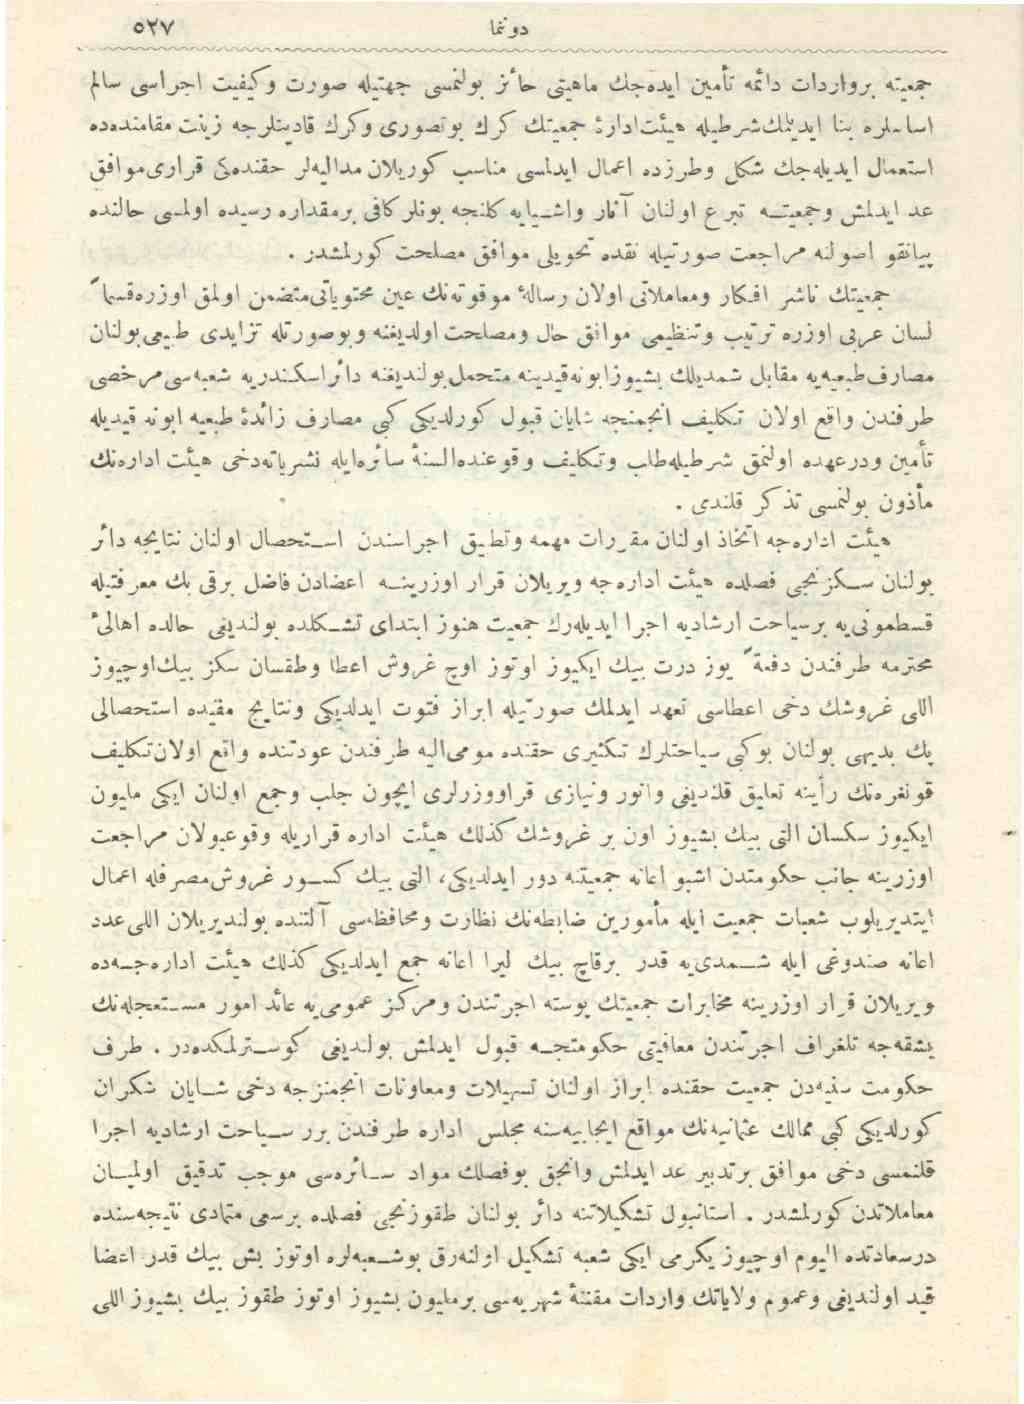 دوننما ٥٢٧
جمعیته برواردات دائمه تأمین ایده‌جك ماهیتی حائز بولنمسی جهتیله صورت وكیفیت اجراسی سالم
اساسلره بنا ایدیلمك‌شرطیله هیئت‌ادارهٔ جمعیتك كرك بوتصوری وكرك قادینلرجه زینت مقامنده‌ده
استعمال ایدیله‌جك شكل وطرزده اعمال ایدلمسی مناسب كوریلان مدالیه‌لر حقنده‌كی قراری‌موافق
عد ایدلمش وجمعیتـه تبرع اولنان آثار واشـیایه كلنجه بونلر كافی برمقداره رسیده اولمـی حالنده
پیانقو اصولنه مراجعت صورتیله نقده تحویلی موافق مصلحت كورلمشدر .
جمعیتك ناشر افكار ومعاملاتی اولان رسالهٔ موقوته‌نك عین محتویاتی‌متضمن اولمق اوزره‌قسماً
لسان عربی اوزره ترتیب وتنظیمی موافق حال ومصلحت اولدیغنه وبوصورتله تزایدی طبیعی‌بولنان
مصارف‌طبعیه‌یه مقابل شمدیلك بشیوزابونه‌قیدینه متحمل‌بولندیغنه دائراسكندریه شعبه‌سی مرخصی
طرفندن واقع اولان تكلیف انجمنجه شایان قبول كورلدیكی كبی مصارف زائدهٔ طبعیه ابونه قیدیله
تأمین ودرعهده اولنمق شرطیله‌طلب وتكلیف وقوعنده‌السنهٔ سائره‌ایله نشریاته‌دخی هیئت اداره‌نك
مأذون بولنمسی تذكر قلندی .
هیئت اداره‌جه اتخاذ اولنان مقررات مهمه وتطبیق اجراسندن اسـتحصال اولنان نتایجه دائر
بولنان سـكزنجی فصلده هیئت اداره‌جه ویریلان قرار اوزرینـه اعضادن فاضل برقی بك معرفتیله
قسطمونی‌یه برسیاحت ارشادیه اجرا ایدیله‌رك جمعیت هنوز ابتدای تشـكلده بولندیغی حالده اهالیٔ
محترمه طرفندن دفعةً یوز درت بیك ایكیوز اوتوز اوچ غروش اعطا وطقسان سكز بیك‌اوچیوز
اللی غروشك دخی اعطاسی تعهد ایدلمك صورتیله ابراز فتوت ایدلدیكی ونتایج مفیده استحصالی
پك بدیهی بولنان بوكبی سیاحتلرك تكثیری حقنده مومی‌الیه طرفندن عودتنده واقع اولان‌تكلیف
قونغره‌نك رأینه تعلیق قلندیغی وانور ونیازی قراووزرلری ایچون جلب وجمع اولنان ایكی ملیون
ایكیوز سكسان التی بیك بشیوز اون بر غروشك كذلك هیئت اداره قراریله وقوعبولان مراجعت
اوزرینه جانب حكومتدن اشبو اعانه جمعیتنه دور ایدلدیكی، التی بیك كسـور غروش‌مصرفله اعمال
ایتدیریلوب شعبات جمعیت ایله مأمورین ضابطه‌نك نظارت ومحافظه‌سی آلتنده بولندیریلان اللی‌عدد
اعانه صندوغی ایله شـمدی‌یه قدر برقاچ بیك لیرا اعانه جمع ایدلدیكی كذلك هیئت اداره‌جـه‌ده
ویریلان قرار اوزرینه مخابرات جمعیتك پوسته اجرتندن ومركز عمومی‌یه عائد امور مسـتعجله‌نك
بشقه‌جه تلغراف اجرتندن معافیتی حكومتجـه قبول ایدلمش بولندیغی كوسـترلمكده‌در . طرف
حكومت سنیه‌دن جمعیت حقنده ابراز اولنان تسهیلات ومعاونات انجمنزجه دخی شـایان شكران
كورلدیكی كبی ممالك عثمانیه‌نك مواقع ایجابیه‌سنه مجلس اداره طرفندن برر سـیاحت ارشادیه اجرا
قلنمسی دخی موافق برتدبیر عد ایدلمش وانجق بوفصلك مواد سـائره‌سی موجب تدقیق اولمیـان
معاملاتدن كورلمشدر . استانبول تشكیلاتنه دائر بولنان طقوزنجی فصلده برسعی متمادی نتیجه‌سنده
درسعادتده الیوم اوچیوز یكرمی ایكی شعبه تشكیل اولنه‌رق بوشـعبه‌لره اوتوز بش بیك قدر اعضا
قید اولندیغی وعموم ولایاتك واردات مقننهٔ شهریه‌سی برملیون بشیوز اوتوز طقوز بیك بشیوز اللی